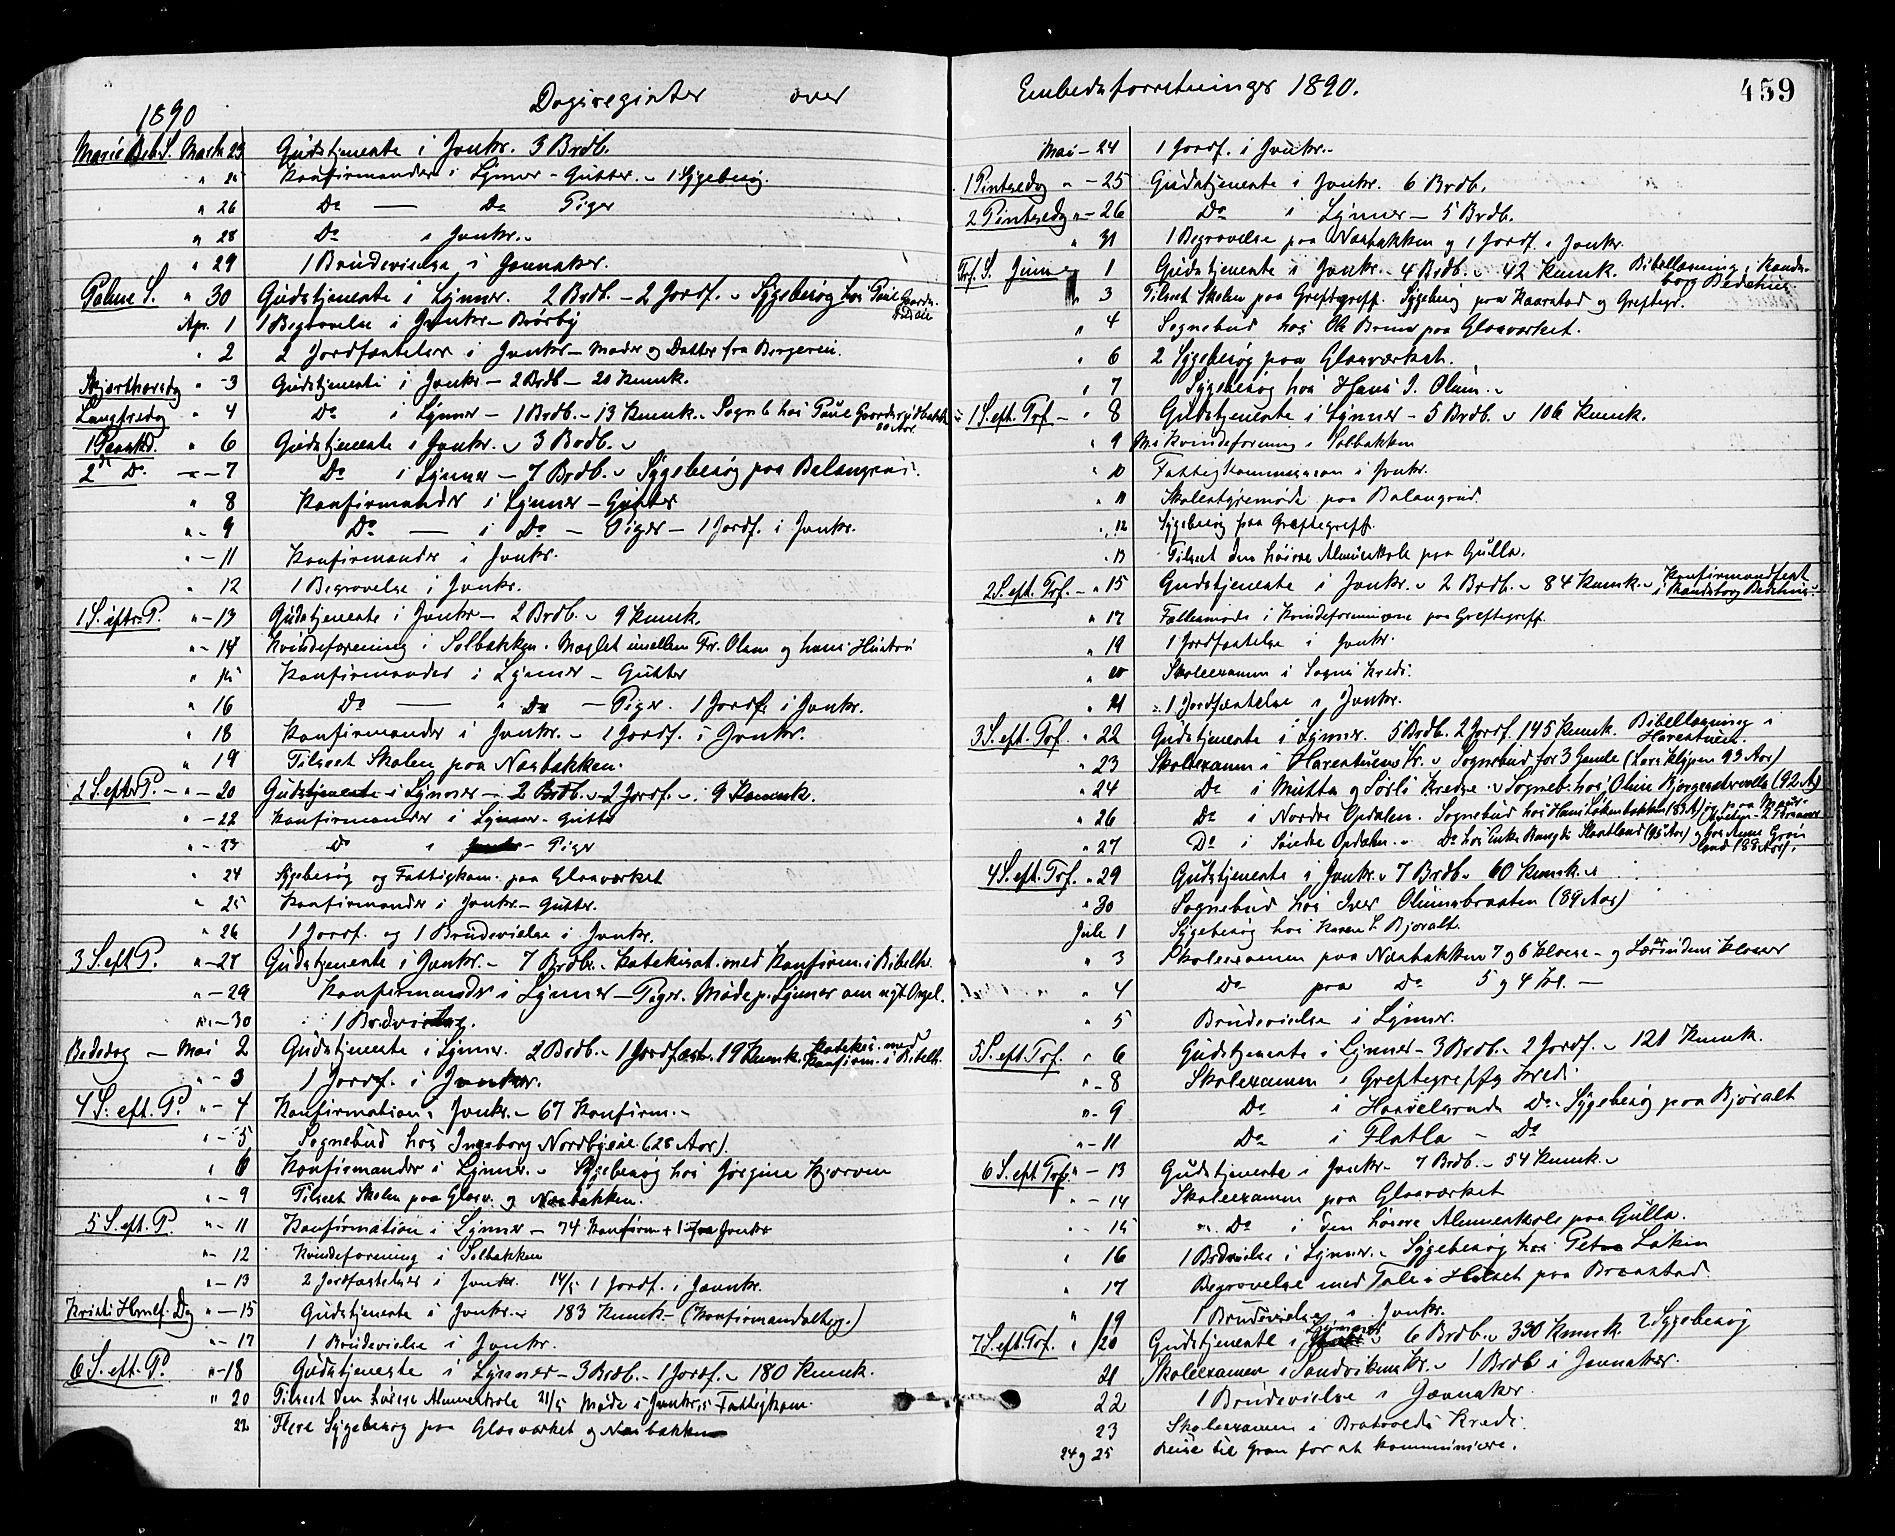 1890 Dagsregister over
Mariæ Beb. S. Marts 23 Gudstjeneste i Jevnkr. 3 Brdb.
" 25 Konfirmander i Lynner - Gutter. - 1 Sygebesøg
" 26 Do — Do Piger
" 28 Do i Jevnkr.
" 29 1 Brudevielse i Jævnaker.
Palme S. " 30 Gudstjeneste i Lynner. 2 Brdb. - 2 Jordf. - Sygebesøg hos
Apr. 1 1 Begravelse i Jevnkr. - Brørby
" 2 2 Jordfæstelser i Jevnkr. - Moder og Datter fra Bergerei.
Skjærthorsdag " 3 Gudstjeneste i Jevnkr - 2 Brdb - 20 Kmnk.
Langfredag " 4 Do i Lynner - 1 Brdb. - 13 Kmnk. - Sogneb hos
1 Paaskd. " 6 Gudstjeneste i Jevnkr. - 3 Brdb. -
2den Do. - 7 Do i Lynner - 7 Brdb. - Sygebesøg paa
" 8 Konfirmander i Lynner - Gutter
" - 9 Do — i Do - Piger - 1 Jordf. i Jevnkr.
" - 11 Konfirmander i Jevnkr.
" 12 1 Begravelse i Jevnkr.
1 S. eftr. P. " - 13 Gudstjeneste i Jevnkr - 2 Brdb. - 9 Kmnk.
" - 14 Kvindeforening i Solbakken. Mæglet imellem Fr. Olsen og hans Hustru
" 15 Konfirmander i Lynner - Gutter
" 16 Do — " Do - Piger. 1 Jordf. i Jevnkr.
" 18 Konfirmander i Jevnkr. - 1 Jordf. i Jevnkr.
" 19 Tilseet Skolen paa Næsbakken.
2 S. eftr P. - " - 20 Gudstjeneste i Lynner - 2 Brdb. - 2 Jordf. - 9 Kmnk.
" - 22 Konfirmander i Lynner - Gutter
" - 23 Do " - Piger
" 24 Sygebesøg og Fattigkom. paa Glasværket
" 25 Konfirmander i Jevnkr. - Gutter.
" 26 1 Jordf. og 1 Brudevielse i Jevnkr.
3 S. eft P. " - 27 Gudstjeneste i Jevnkr. - 7 Brdb. - Katekisat. med Konfirm. i Bibelh.
" - 29 Konfirmander i Lynner - Piger. Møde p. Lynner om nyt Orgel.
" - 30 1 Brdvielse.
Bededag - Mai 2 Gudstjeneste i Lynner. 2 Brdb. - 1 Jordfæst. 19 Kmnk. Katekis. med Konfirm. i Bibelh.
" - 3 1 Jordf. i Jevnkr.
4 S. eft. P. " - 4 Konfirmation i Jevnkr. - 67 Konfirm. -
" - 5 Sognebud hos Ingeborg Nordbyeie (28 Aar).
" 6 Konfirmander i Lynner. - Sygebesøg hos Jørgine Kjorven
" - 9 Tilseet Skolen paa Glasv. og Næsbakken.
5 S. eft. P. " - 11 Konfirmation i Lynner - 74 Konfirm + 1 fra Jevnkr
" - 12 Kvindeforening i Solbakken
" - 13 2 Jordfæstelser i Jevnkr. 14/5 1 Jordf. i Jævnkr.
Kristi Hmlf. Dg " - 15 Gudstjeneste i Jevnkr. - 183 Kmnk. - (Konfirmandaltrg.)
" - 17 1 Brudevielse i Jevnkr.
6 S. eft. P. " - 18 Gudstjeneste i Lynner - 3 Brdb. - 1 Jordf. - 180 Kmnk.
" 20 Tilseet den høiere Almueskole 21/5 Møde i Jevnkrs Fattigkom.
22 Flere Sygebesøg paa Glasværket og Næsbakken
Embedsforretninger 1890. 459
Mai - 24 1 Jordf. i Jevnkr. -
1 Pintsedg " - 25 Gudstjeneste i Jevnkr. 6 Brdb.
2 Pintsedg " - 26 Do i Lynner - 5 Brdb.
" 31 1 Begravelse paa Næsbakken og 1 Jordf. i Jevnkr.
Trf. S. Juni 1 Gudstjeneste i Jevnkr. - 4 Brdb. - 42 Kmnk. Bibellæsning i Randsborg Bedehus
" 3 Tilseet Skolen paa Greftegreff. Sygebesøg paa Kaarstad og Greftegr.
" 4 Sognebud hos Ole Bruun paa Glasværket.
" 6 2 Sygebesøg paa Glasværket.
" 7 Sygebesøg hos Hans I. Olum. -
1 S. eft. Trf - " 8 Gudstjeneste i Lynner - 5 Brdb. - 106 Kmnk.
" 9 Kvindeforening i Solbakken
" 10 Fattigkommission i Jevnkr.
" 11 Skolestyremøde paa
" 12 Sygebesøg paa Greftegreff.
" 13 Tilseet den høiere Almueskole paa Gulla.
2 S. eft. Trf. - " 15 Gudstjeneste i Jevnkr. - 2 Brdb. - 84 Kmnk. - Konfirmandfest i Randsborg Bedehus
" 17 Fællesmøde i Kvindeforeningerne paa Greftegreff.
" 19 1 Jordfæstelse i Jevnkr.
" 20 Skoleexamen i Sogns Kreds.
" 21 1 Jordfæstelse i Jevnkr.
3 S. eft. Trf. " 22 Gudstjeneste i Lynner. 5 Brdb. 2 Jordf. 145 Kmnk. Bibellæsning i Harestuen.
" 23 Skolexamen i Harestuens Kr. - Sognebud for 3 Gamle (Lars Klypen 93 Aar)
" 24 Do i Mutta og Sørli Kredse - Sogneb. hos Oline (92 A)
" 26 Do i Nordre Opdalen. Sognebud hos Hans
" 27 Do i Søndre Opdalen. - Do hos Enke
4 S. eft. Trf. " 29 Gudstjeneste i Jevnkr. - 7 Brdb. - 60 Kmnk. -
" 30 Sognebud hos Iver Olumsbraaten (89 Aar)
Juli 1 Sygebesøg hos Karen L. Bjøralt
" 3 Skoleexamen paa Næsbakken 7 og 6 Klasse - og Lærerindens Klasser
" 4 Do paa Do 5 og 4 Kl. -
" 5 Brudevielse i Lynner.
5 S. eft. Trf. " 6 Gudstjeneste i Lynner - 3 Brdb. - 2 Jordf. - 121 Kmnk.
" - 8 Skolexamen i Greftegreffs Kreds
" - 9 Do i Do - Sygebesøg paa Bjøralt
" - 11 Do i Flatla - Do
6 S. eft Trf. " - 13 Gudstjeneste i Jevnkr - 7 Brdb. - 54 Kmnk. -
" - 14 Skoleexamen paa Glasværket
" 15 Do i den høiere Almueskole paa Gulla.
" 16 1 Brdvielse i Lynner. - Sygebesøg hos Petra Løken
" 17 Begravelse med Tale i Huset paa Braastad.
" 19 1 Brudevielse i Jevnkr.
7 S. eft. Trf. " 20 Gudstjeneste i Lynner - 6 Brdb. - 330 Kmnk. 2 Sygebesøg
21 Skoleexamen i Sandvikens Kr. - 1 Brdb i Jevnaker.
22 1 Brudevielse i Jævnaker.
23 Skoleexamen i Bratvolds Kreds.
24 og 25 Reise til Gran for at kommunicere.